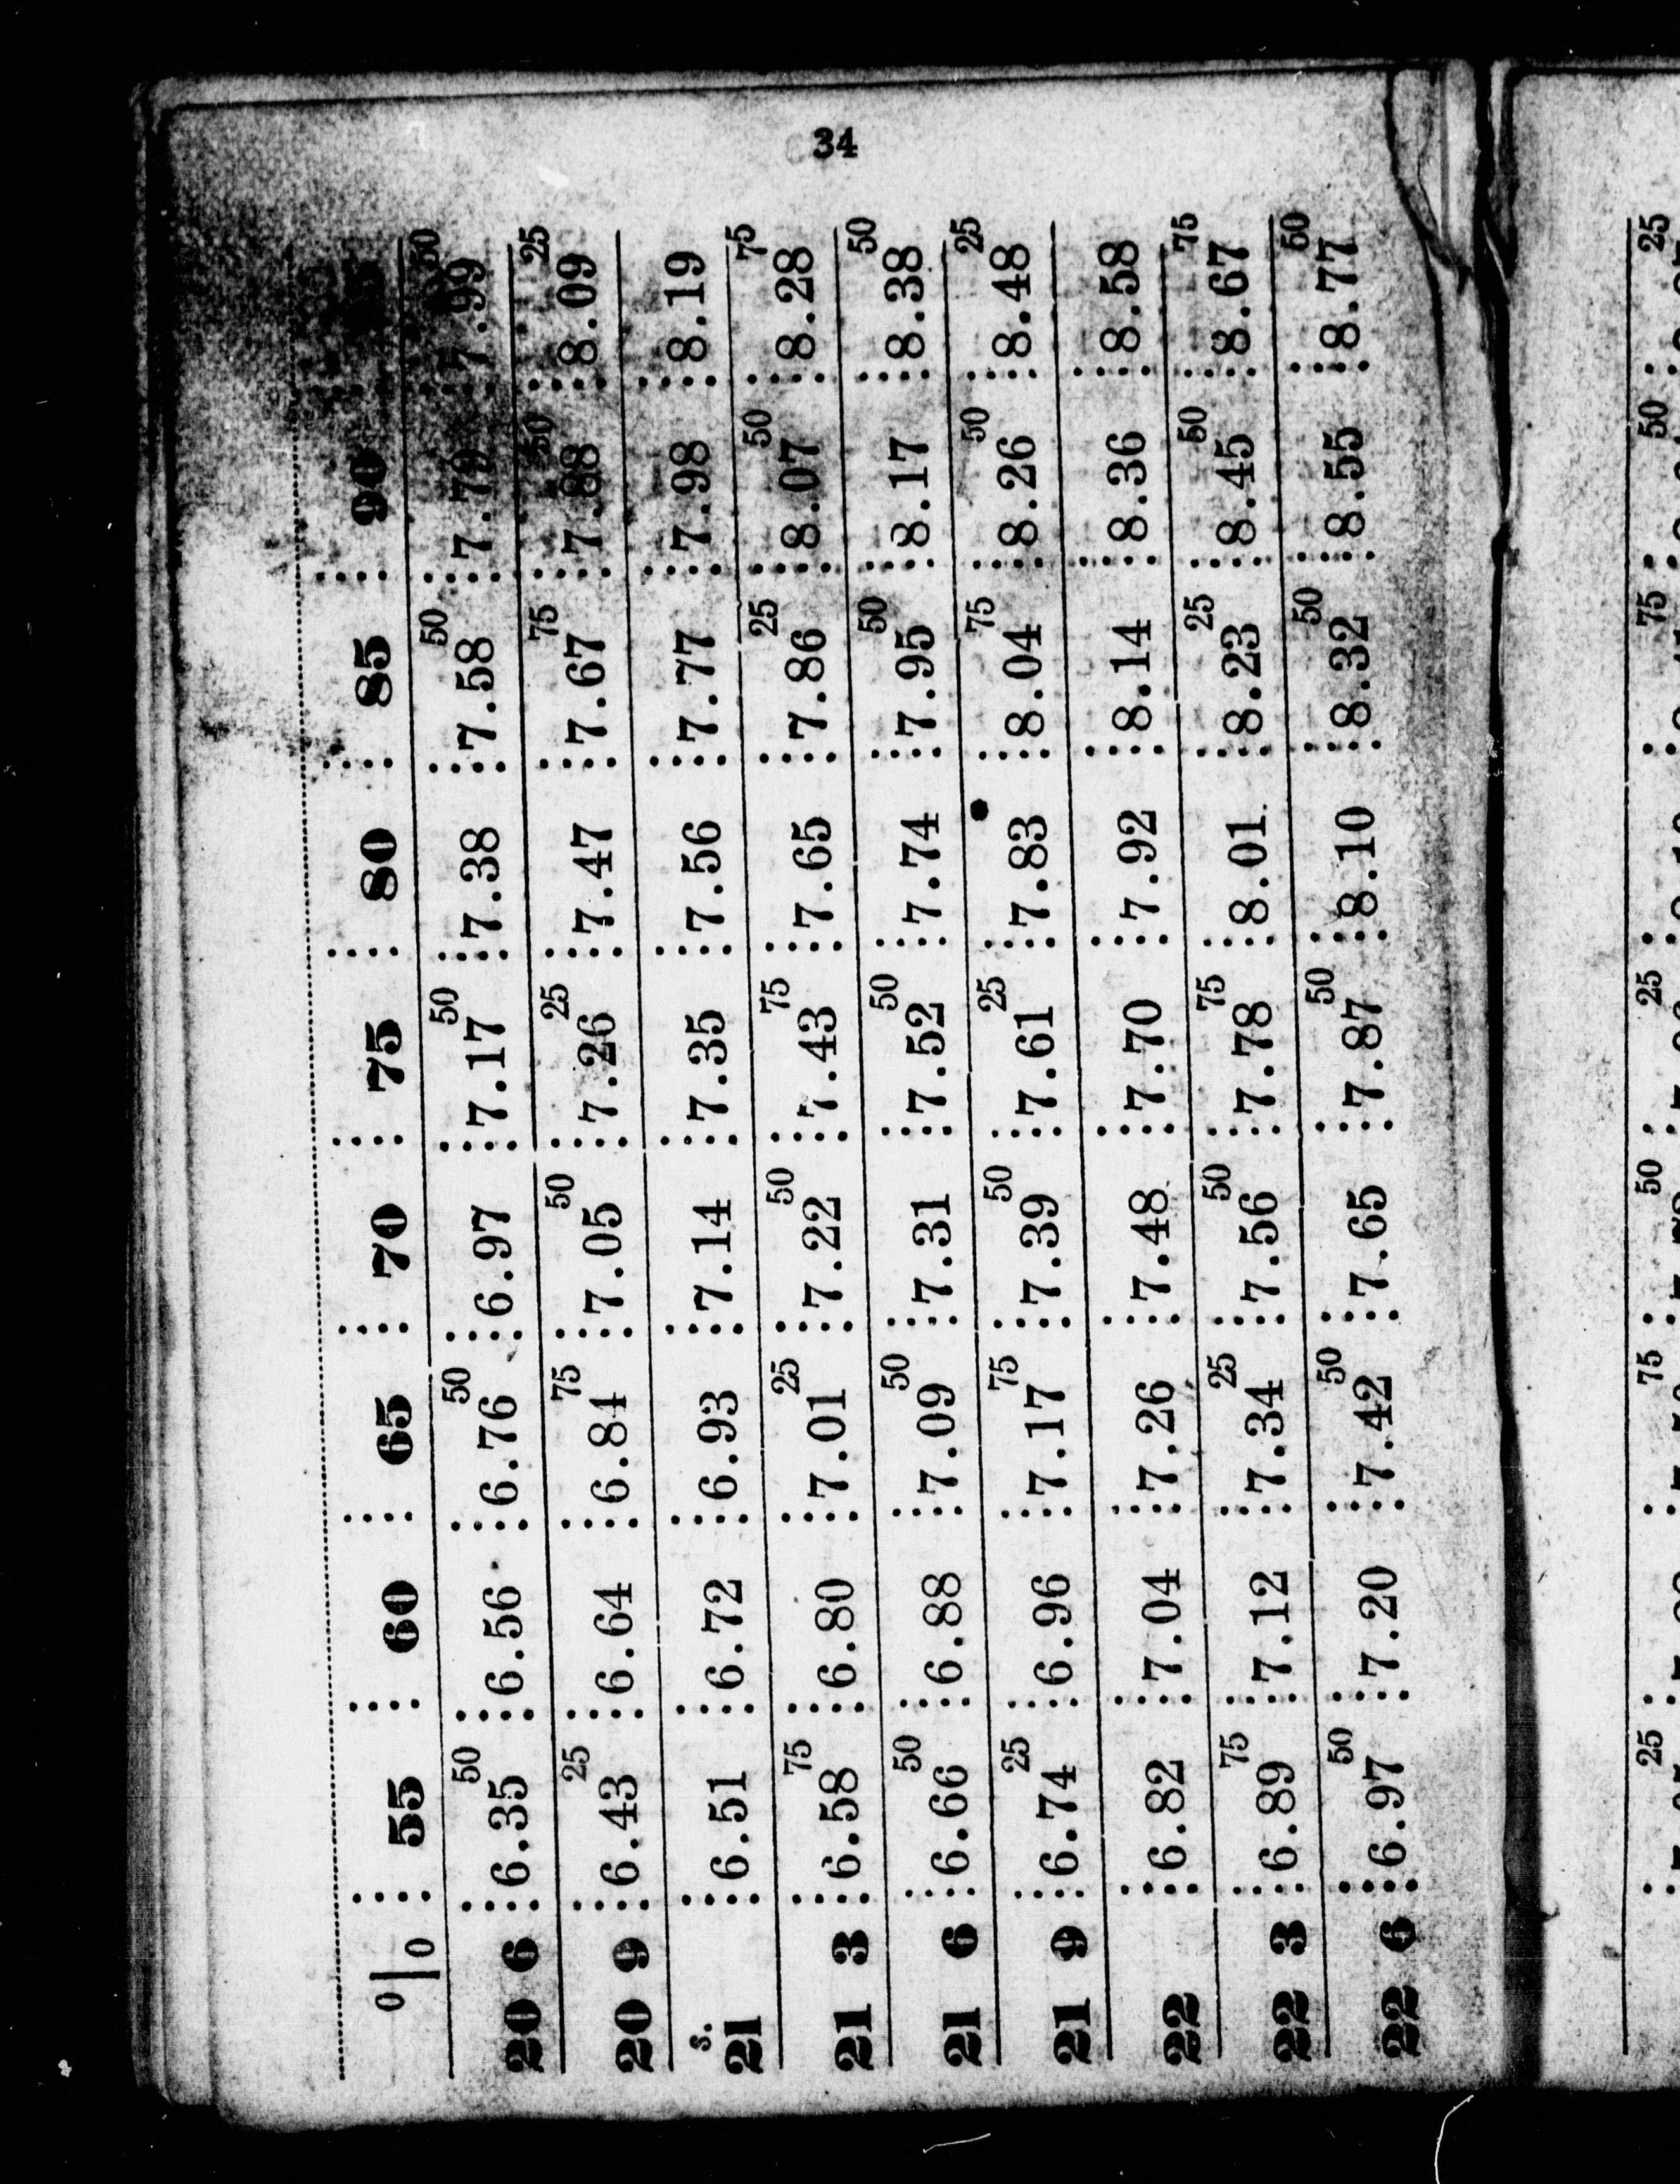 34
0/0 55 60 65 70 75 80 85 90
20 6 6.35 50 6.56 6.76 50 6.97 7.17 50 7.38 7.58 50 7.79 7.99 50
20 9 6.43 25 6.64 6.84 75 7.05 50 7.26 25 7.47 7.67 75 7.88 50 8.09 25
s. 21 6.51 6.72 6.93 7.14 7.35 7.56 7.77 7.98 8.19
21 3 6.58 75 6.80 7.01 25 7.22 50 7.43 75 7.65 7.86 25 8.07 50 8.28 75
21 6 6.66 50 6.88 7.09 50 7.31 7.52 50 7.74 7.95 50 8.17 8.38 50
21 9 6.74 25 6.96 7.17 75 7.39 50 7.61 25 7.83 8.04 75 8.26 50 8.48 25
22 6.82 7.04 7.26 7.48 7.70 7.92 8.14 8.36 8.58
22 3 6.89 75 7.12 7.34 25 7.56 50 7.78 75 8.01 8.23 25 8.45 50 8.67 75
22 6 6.97 50 7.20 7.42 50 7.65 7.87 50 8.10 8.32 50 8.55 8.77 50
25 75 50 25 75 50 25